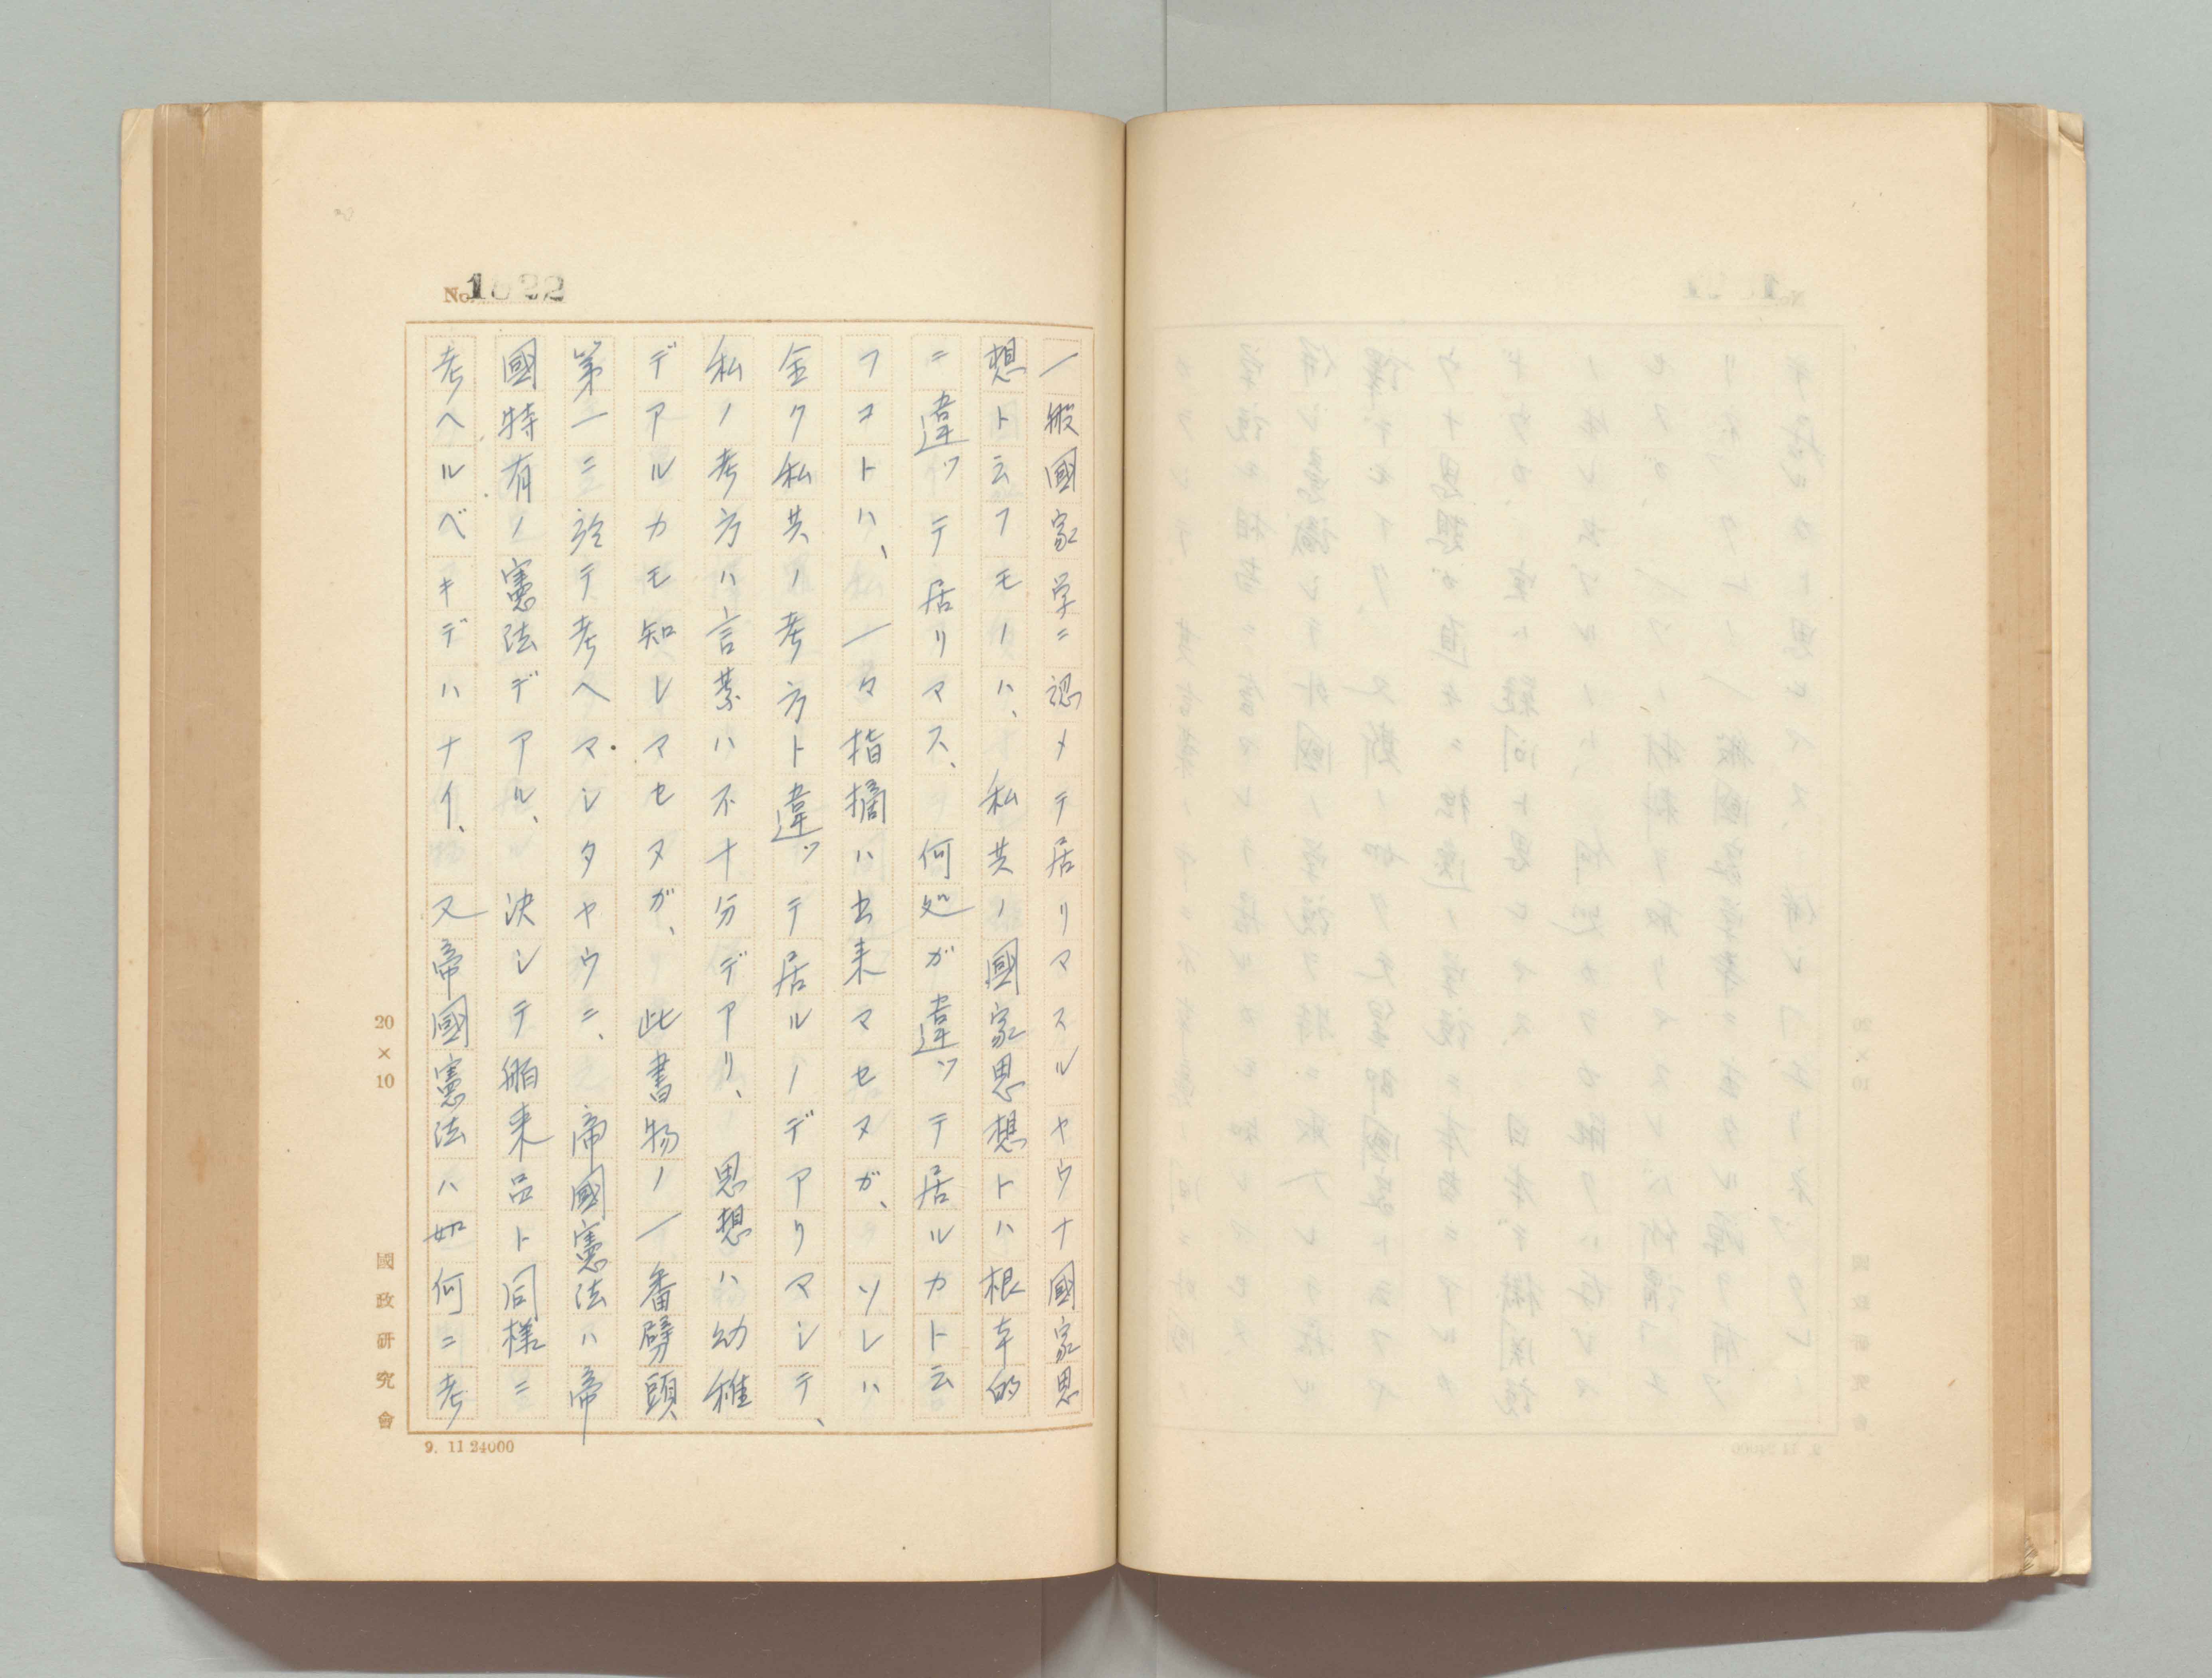 No. 1622
一般國家学ニ認メテ居リマスルヤウナ國家思
想ト云フモノハ、私共ノ國家思想トハ根本的
ニ違ッテ居リマス、何処ガ違ッテ居ルカト云
フコトハ、一々指摘ハ出来マセヌガ、ソレハ
全ク私共ノ考方ト違ッテ居ルノデアリマシテ、
私ノ考方ハ言葉ハ不十分デアリ、思想ハ幼稚
デアルカモ知レマセヌガ、此書物ノ一番劈頭
第一ニ於テ考ヘマシタヤウニ、帝國憲法ハ帝
國特有ノ憲法デアル、決シテ舶来品ト同様ニ
考ヘルベキデハナイ、又帝國憲法ハ如何ニ考
20×10
國政研究會
9. 11 24000